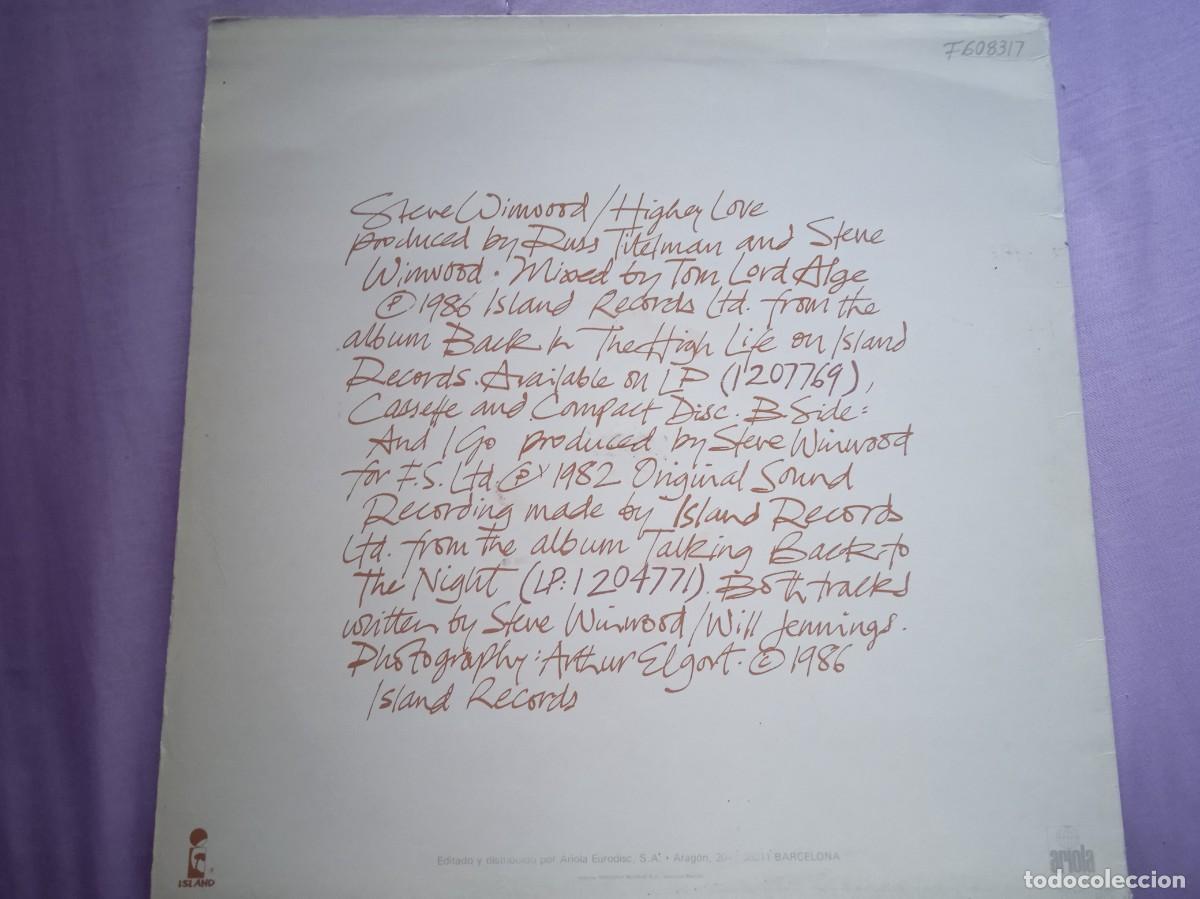 F608317
Steve Winwood / Higher Love
produced by Russ Titelman and Steve
Winwood · Mixed by Tom Lord Alge
Ⓟ 1986 Island Records Ltd. from the
album Back In The High Life on Island
Records. Available on LP (1207769),
Cassette and Compact Disc. B.Side:
And I Go produced by Steve Winwood
for F.S. Ltd. Ⓟ 1982 Original Sound
Recording made by Island Records
Ltd. from the album Talking Back to
The Night (LP: 1204771). Both tracks
written by Steve Winwood / Will Jennings.
Photography: Arthur Elgort. © 1986
Island Records
ISLAND
Editado y distribuido por Ariola Eurodisc, S.A. • Aragón, BARCELONA
ariola
todocoleccion